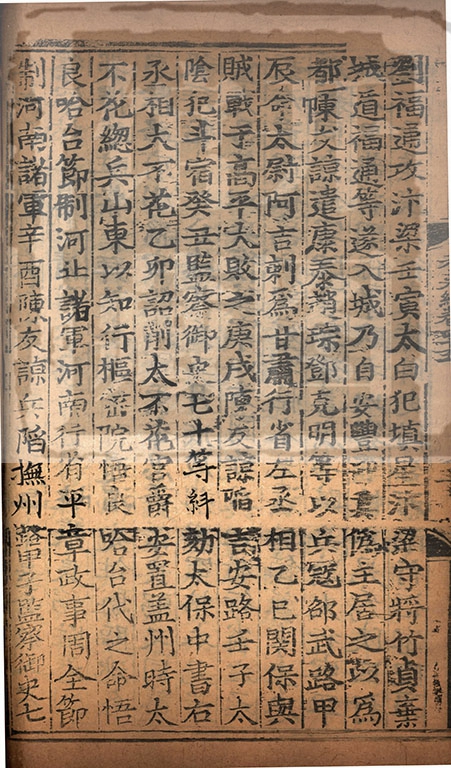 劉福通攻汴梁壬寅太白犯填星汴梁守將竹貞棄
城遁福通等遂入城乃自安豐迎其僞主居之以爲
都陳友諒遣康泰趙琮鄧克明等以兵寇邵武路甲
辰命太尉阿吉剌爲甘肅行省左丞相乙巳関保與
賊戰于高平大敗之庚戌陳友諒陷吉安路壬子太
陰犯斗宿癸丑監察御史七十等糾劾太保中書右
丞相太不花乙卯詔削太不花官爵安置盖州時太
不花緫兵山東以知行樞密院悟良哈台代之命悟
良哈台節制河北諸軍河南行省平章政事周全節
制河南諸軍辛酉陳友諒兵陷撫州路甲子監察御史七